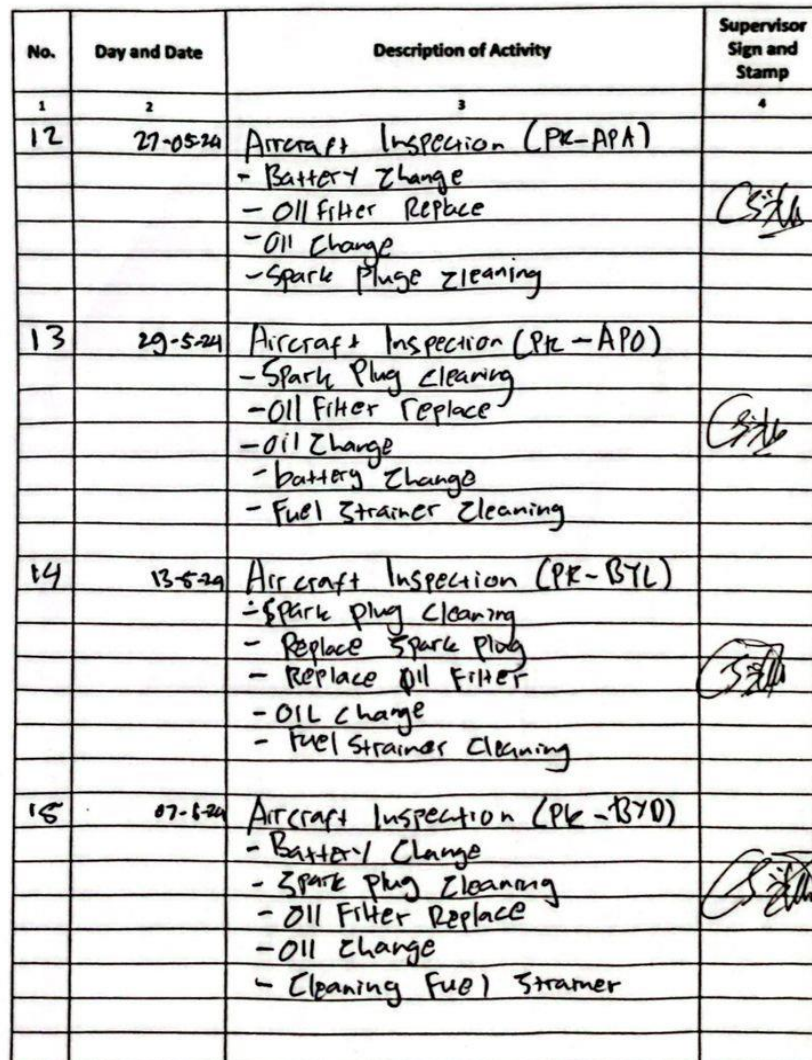 No. Day and Date Description of Activity Supervisor Sign and Stamp
1 2 3 4
12 27-05-24 Aircraft Inspection (PK-APA)
- Battery Change
- Oil Filter Replace
- Oil Change
- Spark Pluge Cleaning
13 29-5-24 Aircraft Inspection (PK-APO)
- Spark Plug Cleaning
- Oil Filter replace
- Oil Change
- battery Change
- Fuel Strainer Cleaning
14 13-5-24 Aircraft Inspection (PK-BYL)
- Spark plug Cleaning
- Replace Spark Plug
- Replace Oil Filter
- OIL Change
- Fuel Strainer Cleaning
15 Aircraft Inspection (PK-BYD)
- Battery Change
- Spark Plug Cleaning
- Oil Filter Replace
- Oil Change
- Cleaning Fuel Strainer